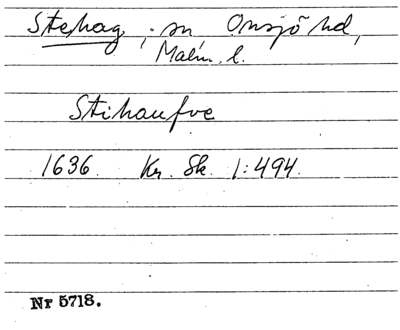 Stehag, sn Onsjö hd,
Malm. l.
Stihaufve
1636. Kr. Sk. 1:494.
Nr 5718.